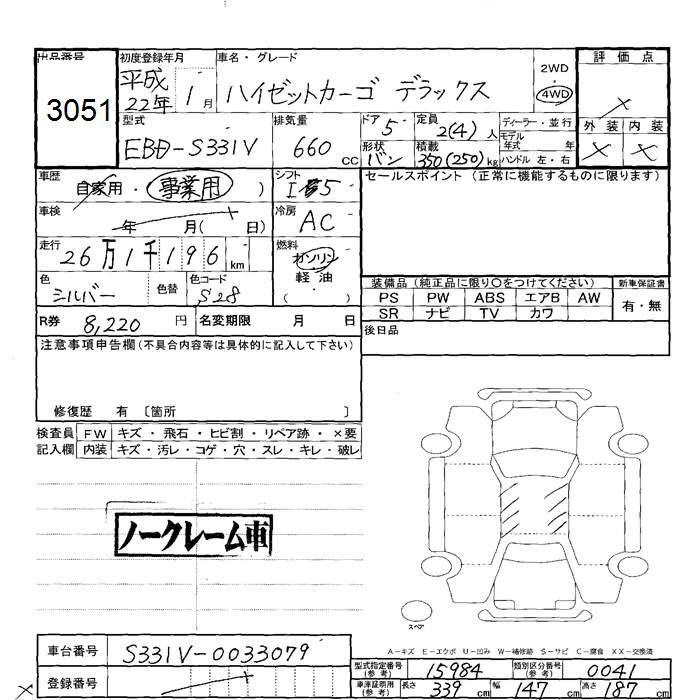 出品番号 初度登録年月 車名・グレード 評価点
3051 平成22年 1月 ハイゼットカーゴ デラックス 2WD 4WD ×
型式 排気量 ドア 5 定員 2(4)人 ディーラー・並行 外装 内装
EBD-S331V 660cc 形状 バン 積載 350(250)kg モデル年式 年 ハンドル 左・右 × ×
車歴 自家用・事業用 ) シフト I 5 セールスポイント (正常に機能するものに限ります)
車検 年 月( 日) 冷房 AC
走行 26万1千196km 燃料 ガソリン
軽油
( )
色 シルバー 色替 色コード S28 装備品 (純正品に限り○をつけてください) 新車保証書
PS PW ABS エアB AW 有・無
SR ナビ TV カワ
R券 8,220円 名変期限 月 日 後日品
注意事項申告欄(不具合内容等は具体的に記入して下さい)
修復歴 有 〔箇所 〕
検査員 FW キズ・飛石・ヒビ割・リペア跡・×要
記入欄 内装 キズ・汚レ・コゲ・穴・スレ・キレ・破レ
ノークレーム車
スペア
A-キズ E-エクボ U-凹み W-補修跡 S-サビ C-腐食 XX-交換済
車台番号 S331V-0033079 型式指定番号(参考) 15984 類別区分番号(参考) 0041
× 登録番号 車庫証明用(参考) 長さ 339cm 幅 147cm 高さ 187cm